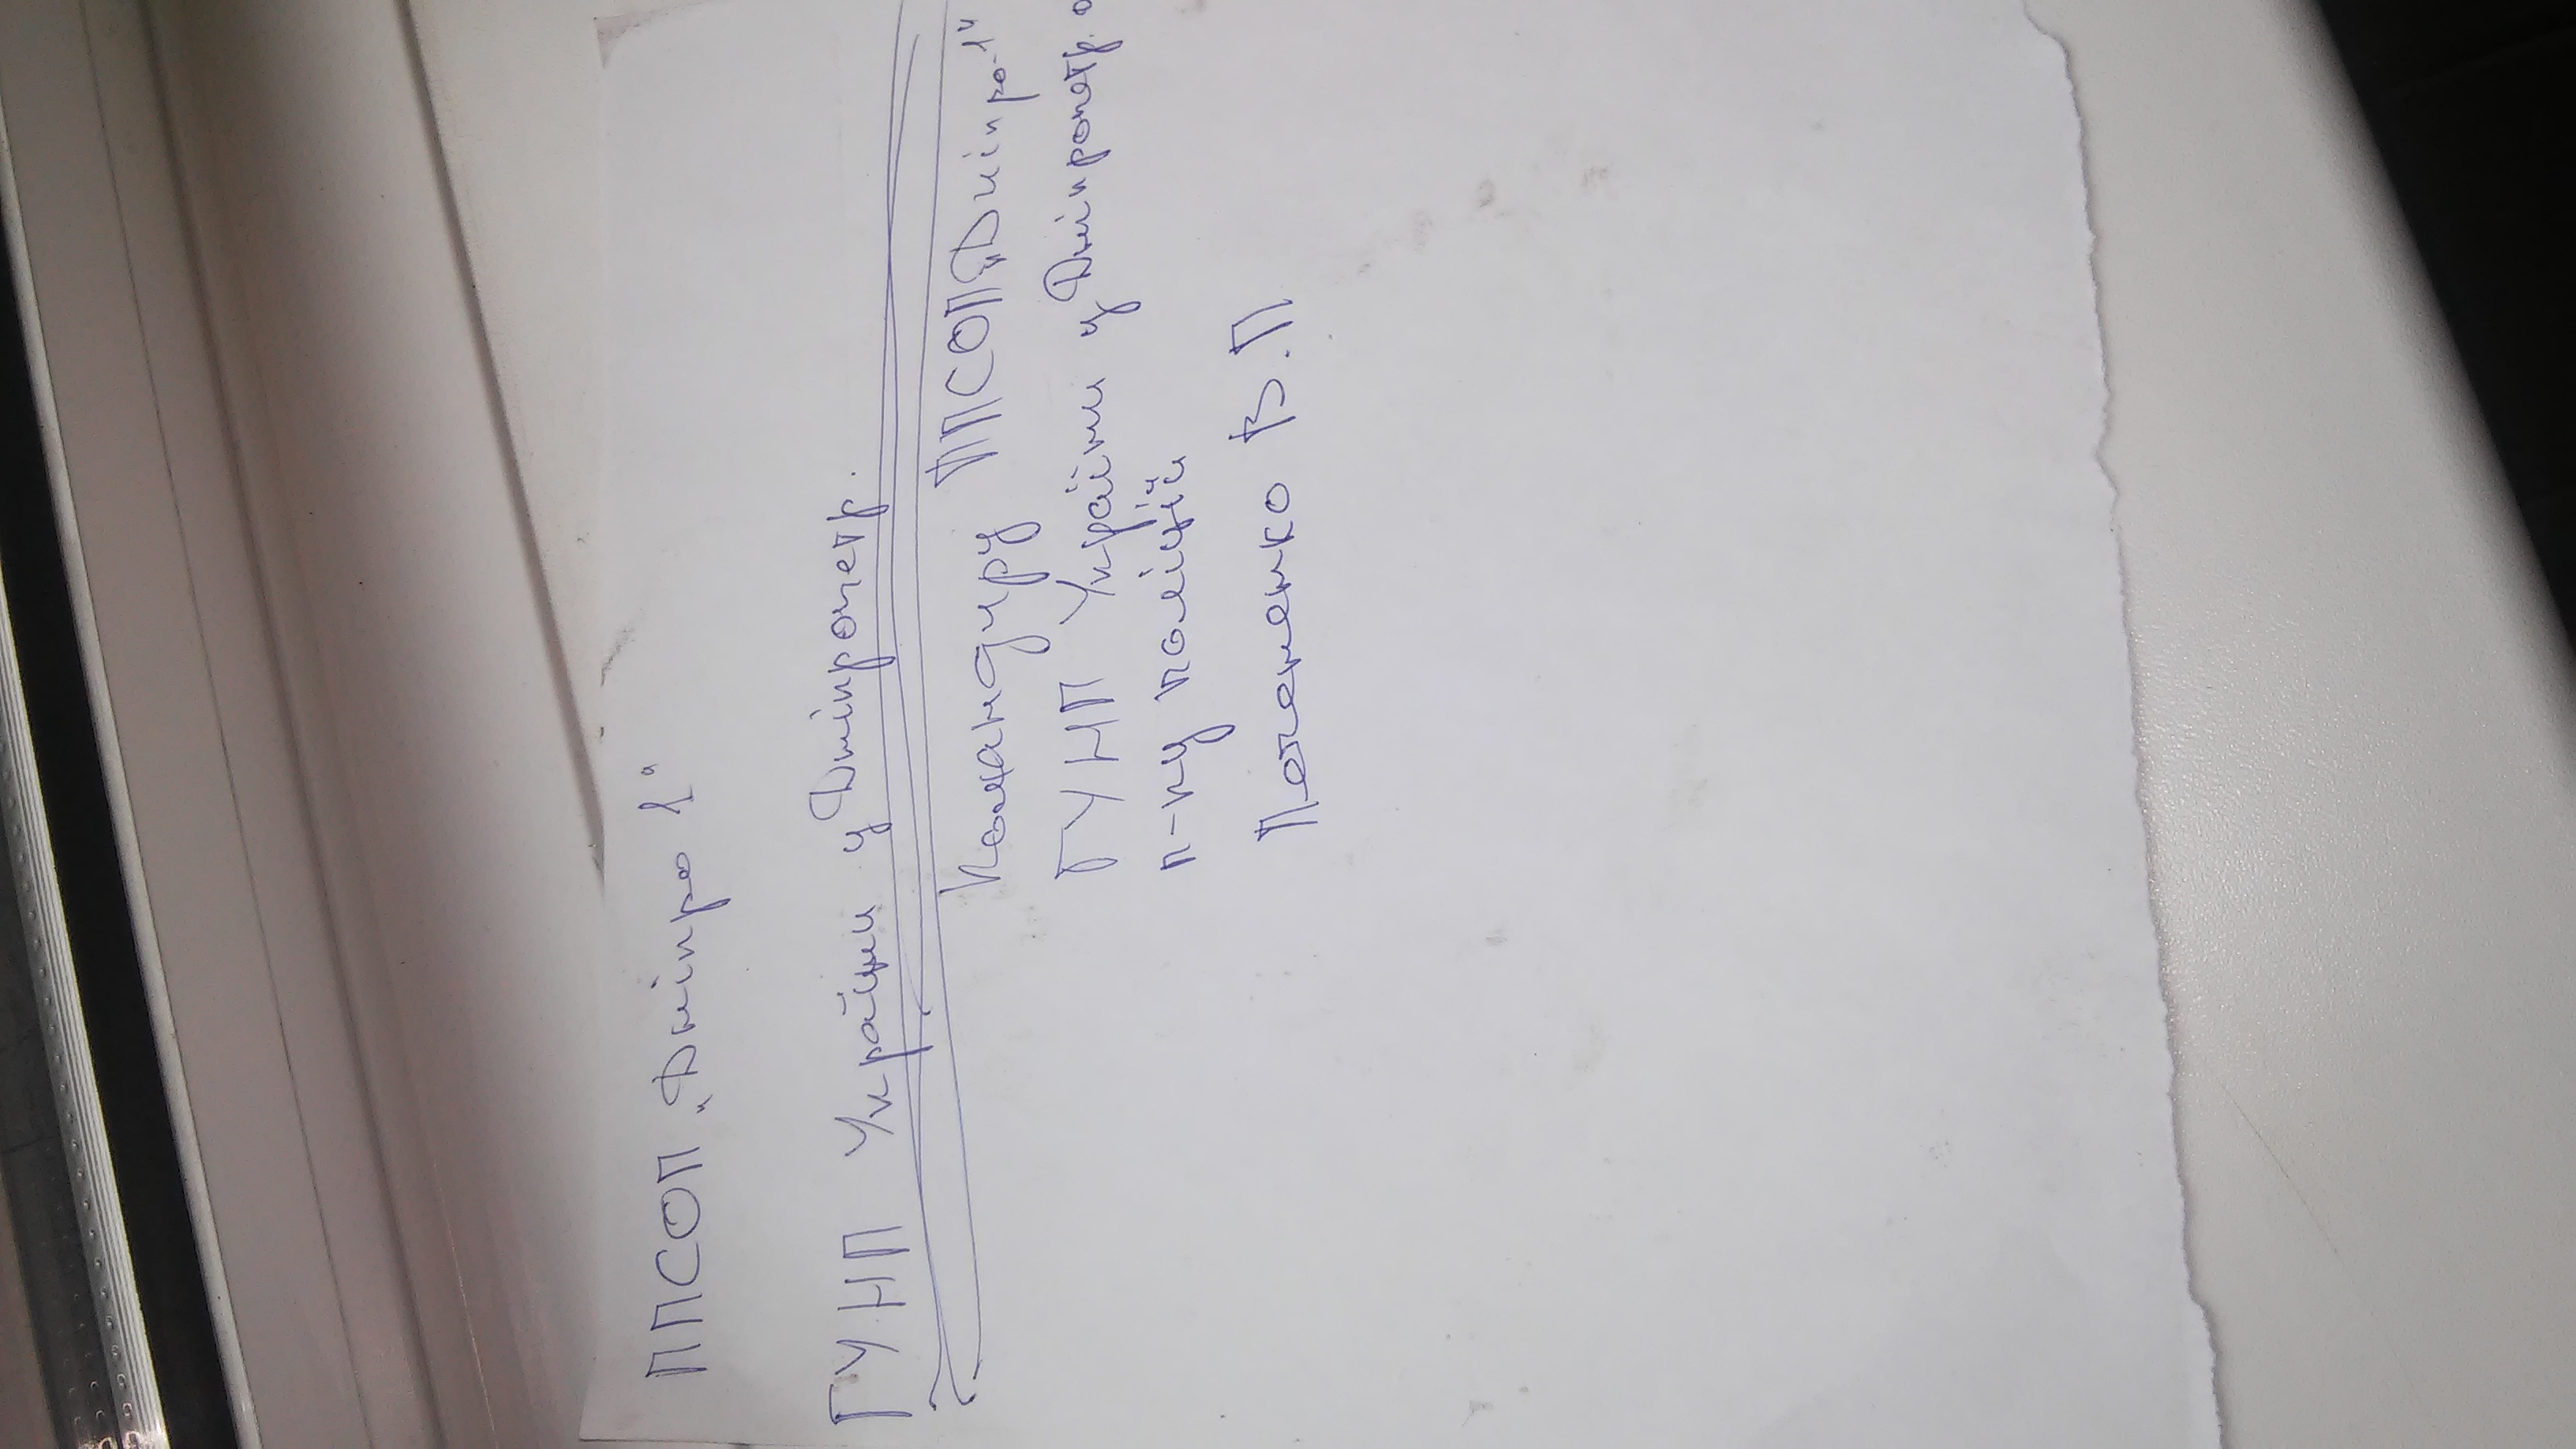 ППСОП „Дніпро 1"
ГУНП України у Дніпропетр.
Командиру ППСОП „Дніпро-1"
ГУНП України у Дніпропетр. о
п-ку поліцій
Печененко В.П